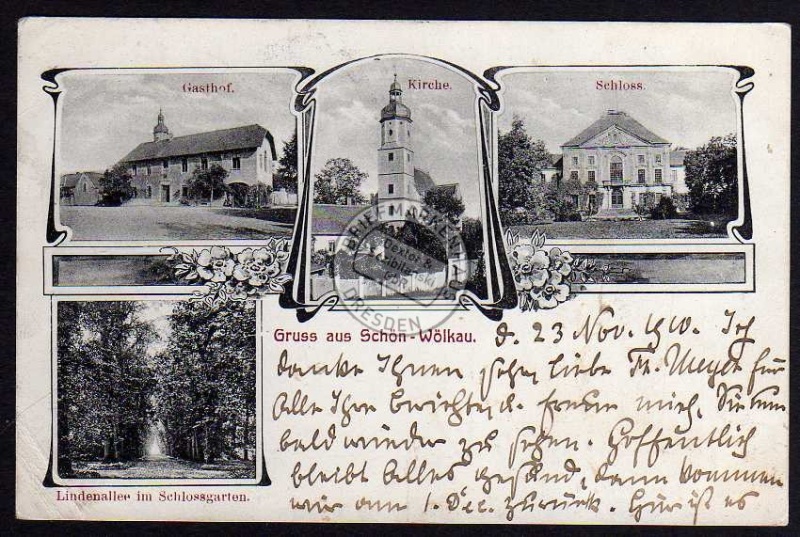 Gasthof.
Kirche.
Schloss.
BRIEFMARKEN
DRESDEN
Gruss aus Schön-Wölkau.
d. 23 Nov. Ich
danke Ihnen sehr, liebe Fr. Meyer für
Alle Ihre berichte, u. freue mich, Sie nun
bald wieder zu sehen. Hoffentlich
bleibt Alles gesund, dann kommen
wir am 1. Dec. zurück. Hier ist es
Lindenallee im Schlossgarten.